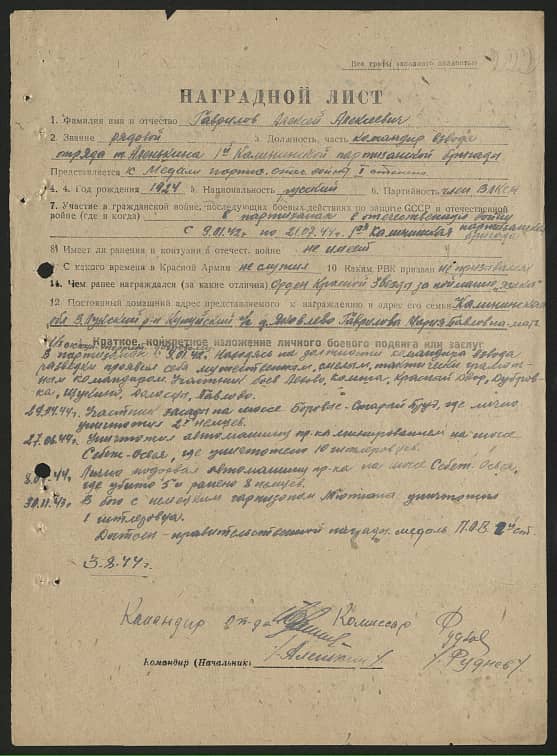 Все графы заполнять полностью
НАГРАДНОЙ ЛИСТ
1. Фамилия имя и отчество Гаврилов Алексей Алексеевич
2. Звание рядовой 3. Должность, часть командир взвода
отряда т. Алешкина 1й Калининской партизанской бригады
Представляется к Медали партиз. отеч. войны I степени
4. 4. Год рождения 1924 5. Национальность русский 6. Партийность член ВЛКСМ
7. Участие в гражданской войне, последующих боевых действиях по защите СССР и отечественной
войне (где и когда) в партизанах в отечественную войну
с 9.01.43г по 21.07.44г. 1я Калининская партизанская
бригада
8) Имеет ли ранения и контузии в отечест. войне не имеет
9 С какого времени в Красной Армии не служил 10 Каким РВК призван не призывался
11. Чем ранее награждался (за какие отличия) Орден Красной Звезды за поимание
12 Постоянный домашний адрес представляемого к награждению и адрес его семьи Калининская
обл В.Лукский р-н д. Яковлево Гаврилова Мария Павловна-мать
Краткое, конкретное изложение личного боевого подвига или заслуг
В партизанах с 9.01.43. Находясь на должности командира взвода
разведки проявил себя мужественным, смелым, тактически грамот-
ным командиром. Участник боев Красный Двор, Дубров-
ка, Щукино, Павлово.
29.04.44г. Участник засады на шоссе где лично
уничтожил 2х немцев.
27.06.44г. Уничтожил автомашину пр-ка минированием на шоссе
Себеж-Освея, где уничтожено 10 гитлеровцев.
44г. Лично подорвал автомашину пр-ка на шоссе Себеж-Освея,
где убито 5 и ранено 8 немцев.
30.11.43г. В бою с немецким гарнизоном уничтожил
1 гитлеровца.
Достоин правительственной награды медаль П.О.В. 2й ст.
3-8-44г.
Командир отр-да Комиссар
Командир (Начальник) /Алешкин/ /Руднев/